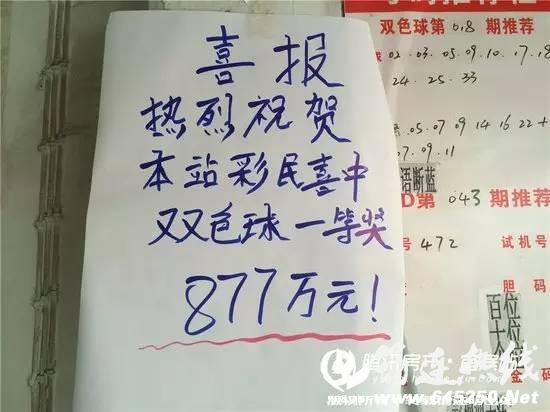 喜报
热烈祝贺
本站彩民喜中
双色球一等奖
877万元!
双色球第018期推荐
02.03.05.09.10.17.18
24.25.33
05.07 09 14 16 22+
07.09.11
语断蓝
D第043期推荐
号 472 试机号
胆码
百位
十位
金码
腾讯房产·宜宾
筠连在线
www.645250.Net